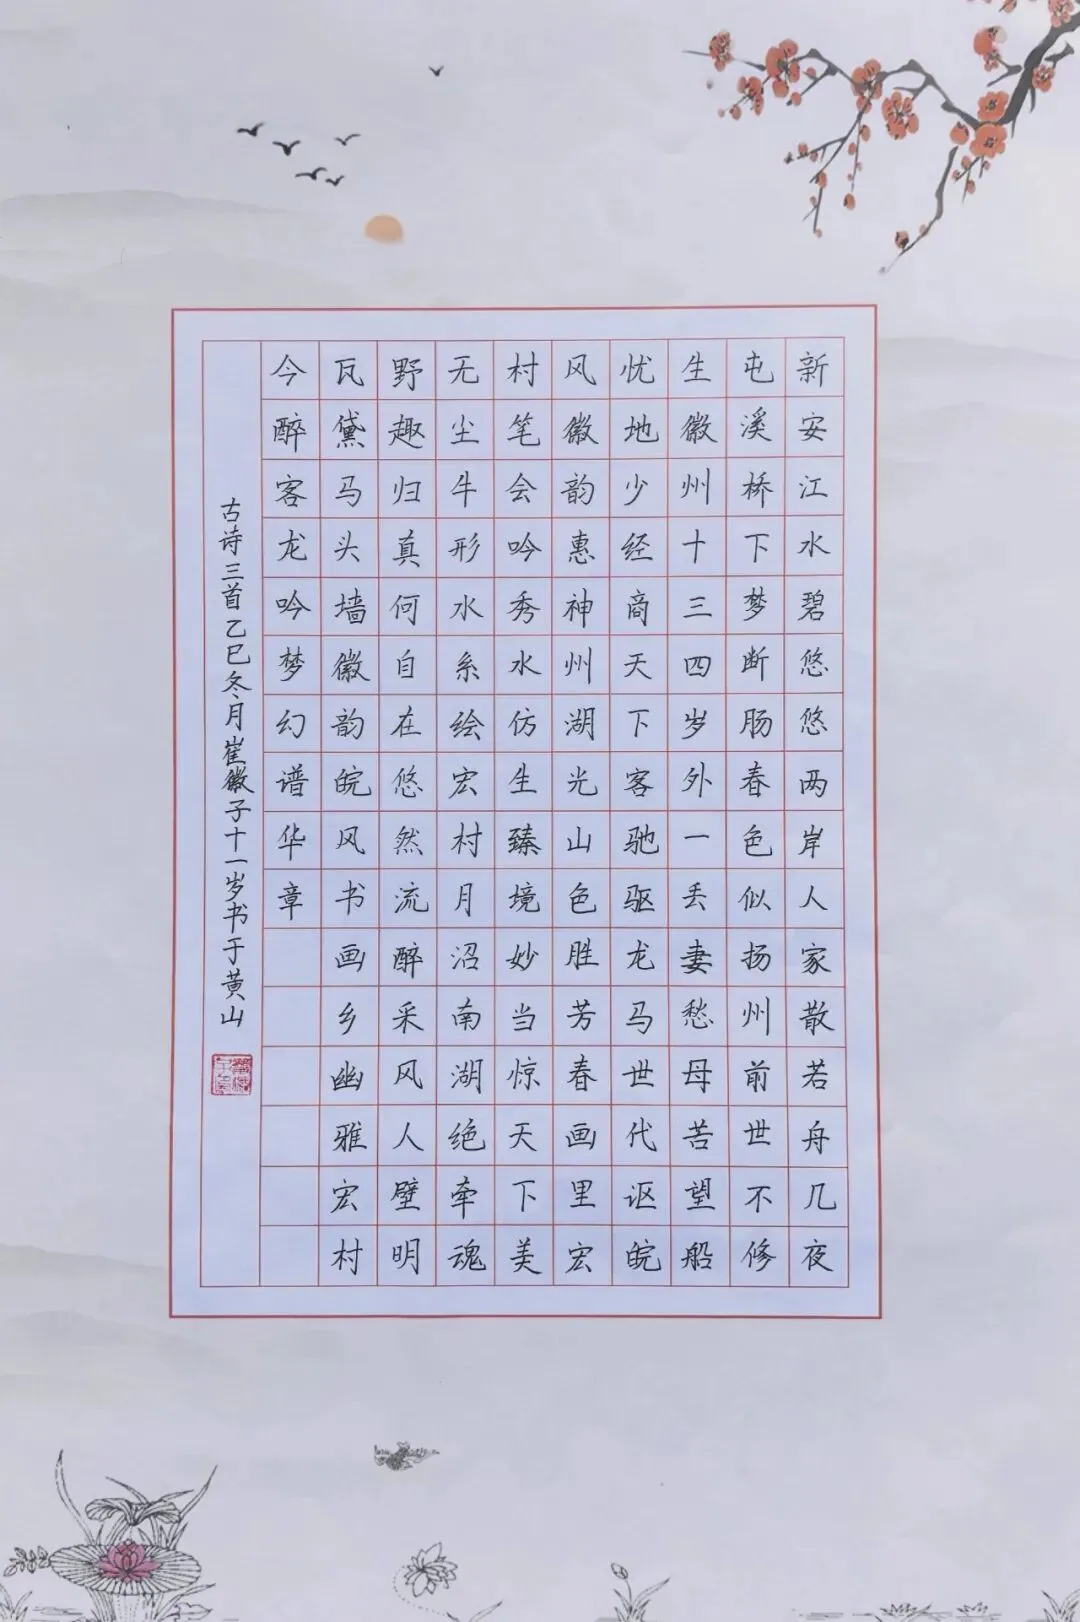 新安江水碧悠悠两岸人家散若舟几夜
屯溪桥下梦断肠春色似扬州前世不修
生徽州十三四岁外一丢妻愁母苦望船
忧地少经商天下客驰驱龙马世代讴皖
风徽韵惠神州湖光山色胜芳春画里宏
村笔会吟秀水仿生臻境妙当惊天下美
无尘牛形水系绘宏村月沼南湖绝牵魂
野趣归真何自在悠然流醉采风人壁明
瓦黛马头墙徽韵皖风书画乡幽雅宏村
今醉客龙吟梦幻谱华章
古诗三首乙巳冬月崔徽子十一岁书于黄山